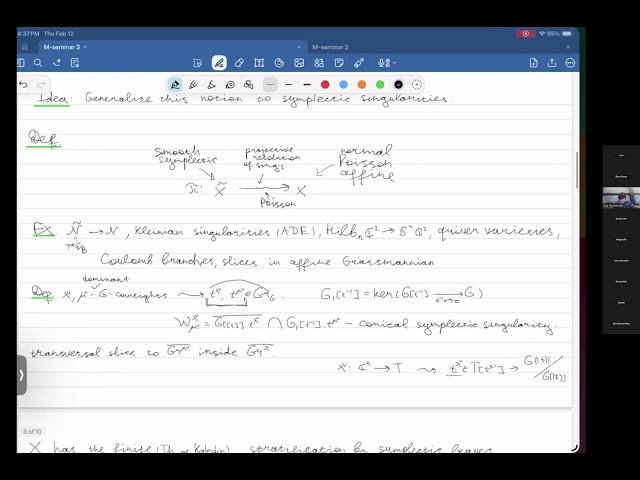 4:37 PM Thu Feb 12
95%
M-seminar 3
M-seminar 2
Idea: Generalize this notion to symplectic singularities.
Def
smooth symplectic
projective resolution of sing-s
normal Poisson affine
π: X̃ → X
Poisson
Ex. Ñ → N, Kleinian singularities (ADE), Hilbₙ ℂ² → Sⁿ ℂ², quiver varieties,
T*G/B
Coulomb branches, slices in affine Grassmannian.
dominant
Def λ, μ - G-coweights ⇝ t^λ, t^μ ∈ Gr_G. G₁[t⁻¹] = ker(G[t⁻¹] → G)
t⁻¹→0
W^λ_μ = \overline{G[[t]].t^λ} ∩ G₁[t⁻¹].t^μ - conical symplectic singularity.
transversal slice to \overline{Gr^μ} inside \overline{Gr^λ}
λ: ℂ^× → T ⇝ t^λ ∈ T[t^{±1}] → G((t))/G[[t]]
3 of 10
X has the finite (Th of Kaledin) stratification by symplectic leaves